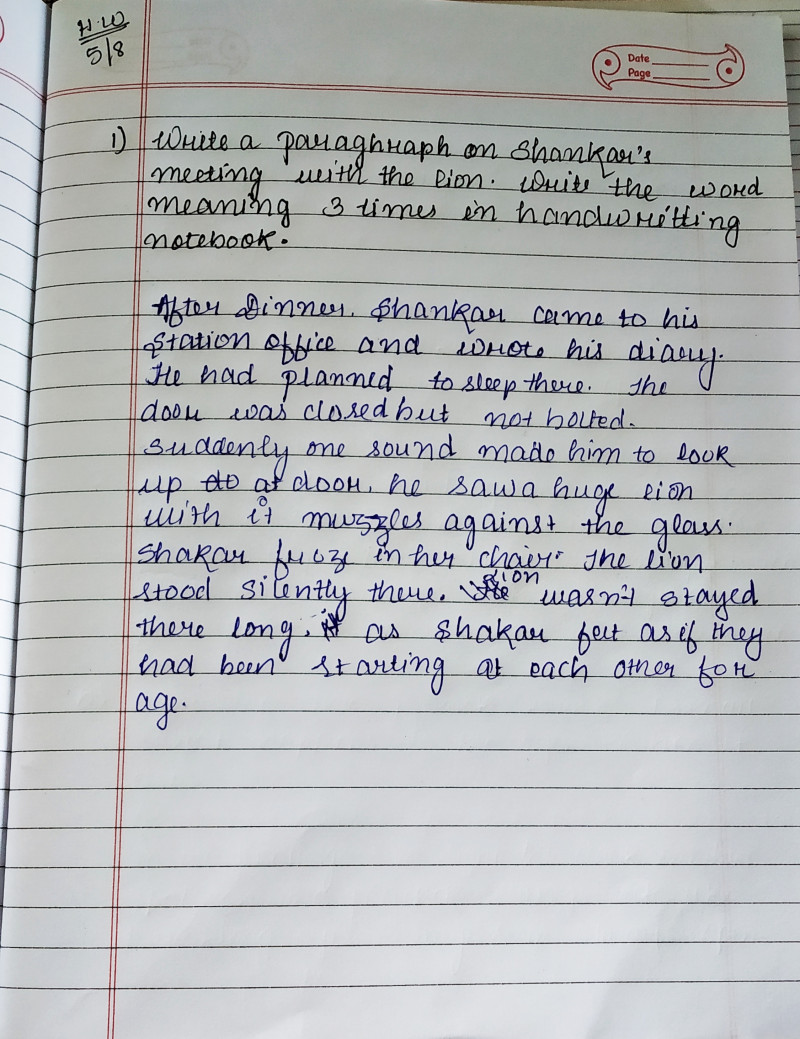 H.W
5/8
Date
Page
1) Write a paraghraph on Shankar's
meeting with the lion. Write the word
meaning 3 times in handwritting
notebook.
After Dinner. Shankar came to his
station office and wrote his diary.
He had planned to sleep there. The
door was closed but not bolted.
Suddenly one sound made him to look
up at door, he saw a huge lion
with it muzzles against the glass.
Shakar froze in her chair. The lion
stood silently there. lion wasn't stayed
there long, as Shakar felt as if they
had been starting at each other for
age.